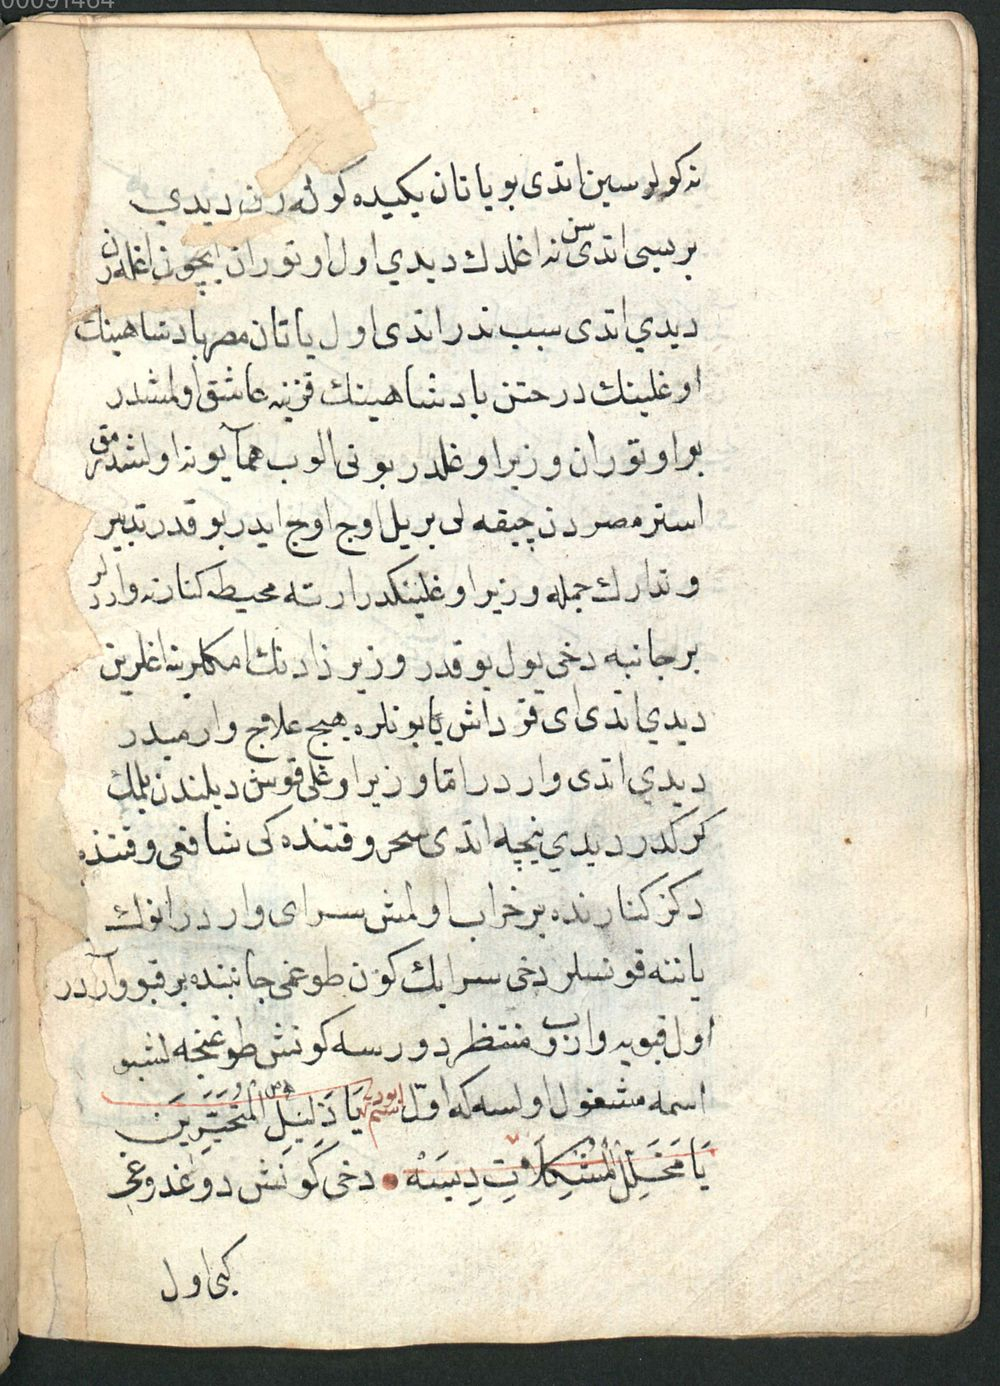 00091464
نه كولرسين اتدی بو ياتان يكيده كولرن ديدي
بریسی اتدی سن نه اغلدك ديدي اول اوتوران ايچون اغلرن
ديدي اتدی سبب ندر اتدی اول ياتان مصر پادشاهينك
اوغلينك در ختن پادشاهينك قزينه عاشق اولمشدر
بو اوتوران وزير اوغلدر بونی الوب همايونه اولشدرمق
استر مصردن چيقه لی بر يل اوج اوج ايدر بو قدر تدبير
و تدارك جمله وزير اوغلينكدر ارته محيطه كنارنه وارلر
بر جانبه دخی يول يوقدر وزير زادنك امكلرينه اغلرين
ديدي اتدی ای قرداش يا بونلره هيج علاج وارميدر
ديدي اتدی واردر امّا وزير اوغلی قوش ديلندن بلمك
كركدر ديدي نيچه اتدی سحر وقتنده كی شافعی وقتنده
دكز كنارنده بر خراب اولمش سرای واردر انوك
ياننه قونسلر دخی سرايك كون طوغمی جانبنده بر قپو واردر
اول قپويه واروب منتظر دورسه كونش طوغنجه لشبو
اسمه مشغول اولسه كه اوّل اسم بودر يَا دَلِيلَ الْمُتَحَيِّرِينَ
يَا مُحَلِّلَ الْمُشْكِلَاتِ دِيسَه دخی كونش دوغدوغی
كبی اول